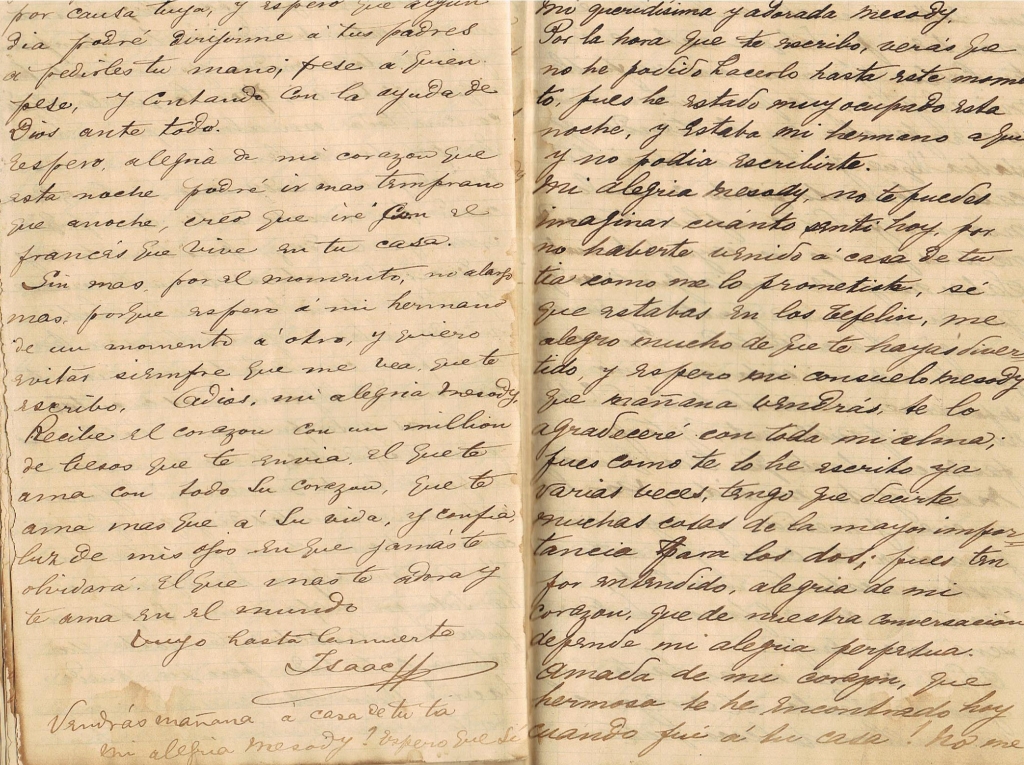 por causa tuya, y espero que algun
dia podré dirijirme á tus padres
a pedirles tu mano; pese á quien
pese, y contando con la ayuda de
Dios ante todo.
Espero, alegria de mi corazon que
esta noche podré ir mas temprano
que anoche, creo que iré con el
francés que vive en tu casa.
Sin mas, por el momento, no alargo
mas, porque espero á mi hermano
de un momento á otro, y quiero
evitar siempre que me vea que te
escribo. Adios, mi alegria Mesody,
Recibe el corazon con un million
de besos que te envia, el que te
ama con todo su corazon, que te
ama mas que á su vida, y confia,
luz de mis ojos en que jamás te
olvidará. El que mas te adora y
te ama en el mundo
Tuyo hasta la muerte
Isaac
Vendrás mañana á casa de tu tia
mi alegria Mesody? Espero que si
Mi queridisima y adorada Mesody.
Por la hora que te escribo, verás que
no he podido hacerlo hasta este momen-
to, pues he estado muy ocupado esta
noche, y estaba mi hermano aqui
y no podia escribirte.
Mi alegria Mesody, no te puedes
imaginar cuánto senti hoy, por
no haberte venido á casa de tu
tia como me lo prometiste, sé
que estabas en los tefelin, me
alegro mucho de que te hayas diver-
tido y espero mi consuelo Mesody
que mañana vendrás, te lo
agradeceré con toda mi alma;
pues como te lo he escrito ya
varias veces, tengo que decirte
muchas cosas de la mayor impor-
tancia para los dos; pues ten
por entendido, alegria de mi
corazon, que de nuestra conversación
depende mi alegria perpetua.
Amada de mi corazon, que
hermosa te he encontrado hoy
cuando fui á tu casa! No me